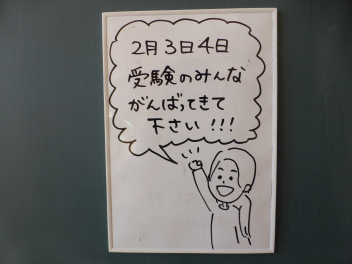 2月3日4日
受験のみんな
がんばってきて
下さい!!!